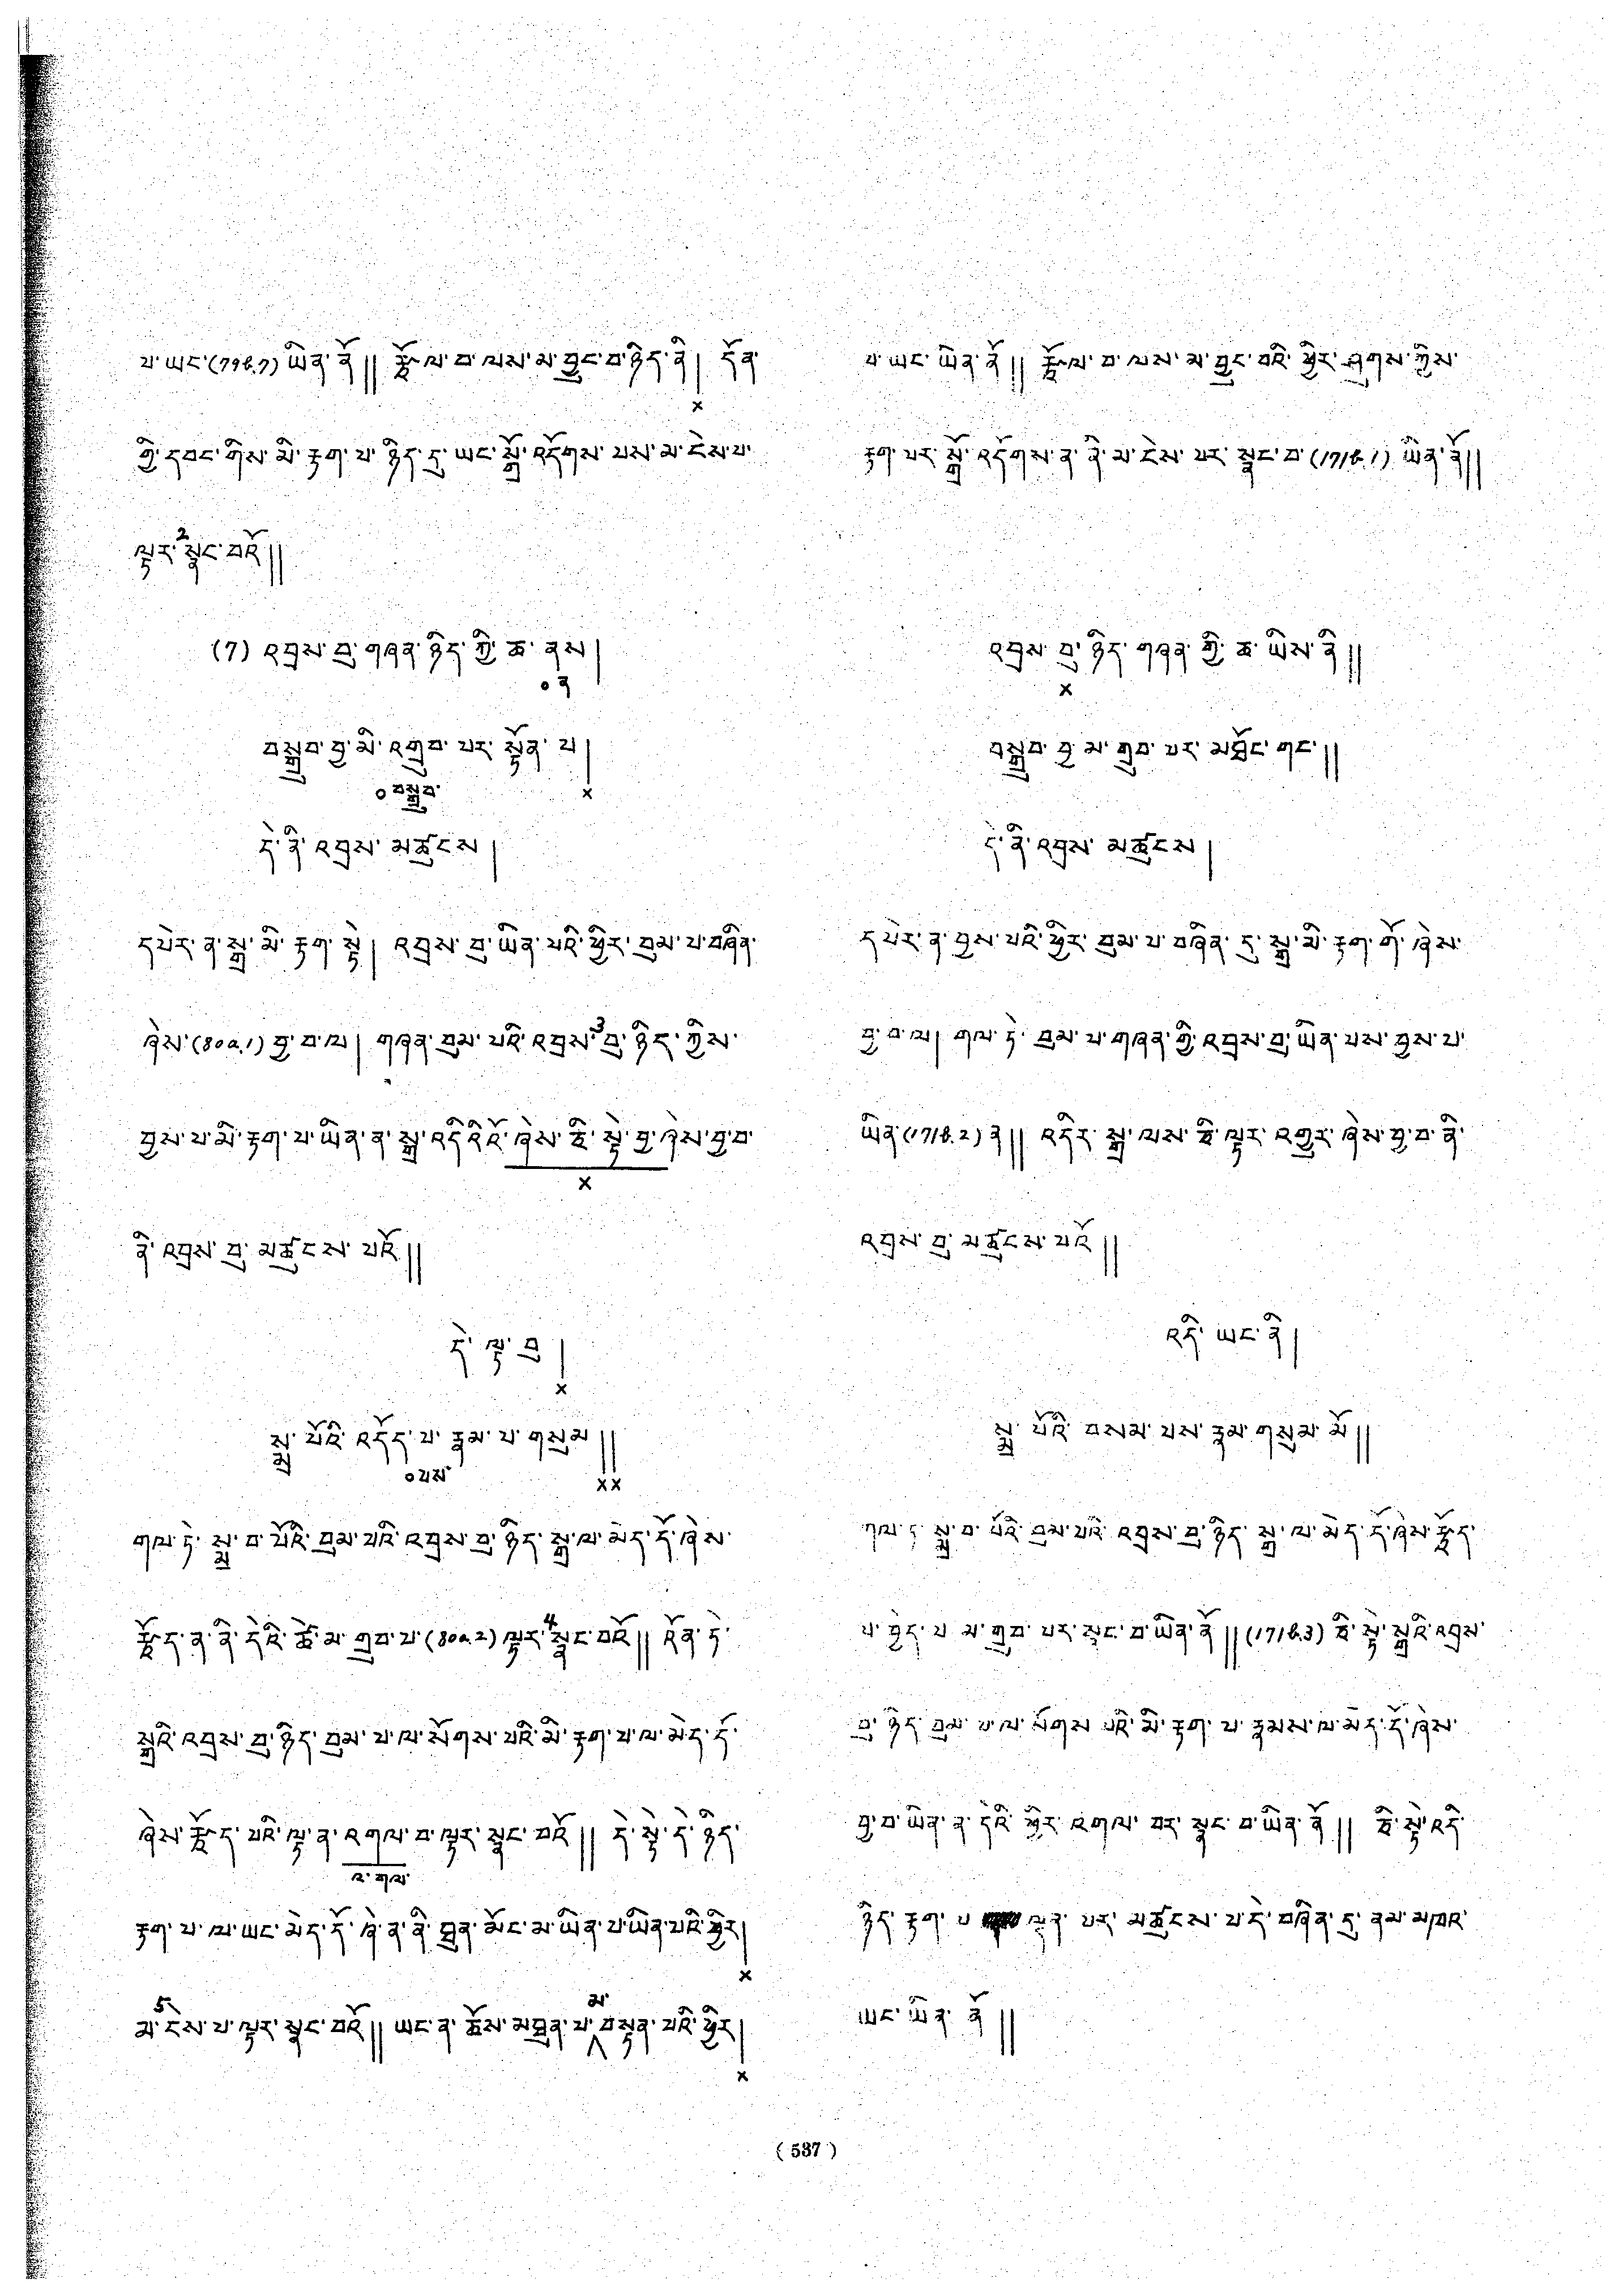 པ་ཡང་(79b.7)ཡིན་ནོ།། རྩོལ་བ་ལས་མ་བྱུང་བ་ཉིད་ནི། དོན་
×
གྱི་དབང་གིས་མི་རྟག་པ་ཉིད་དུ་ཡང་སྒྲོ་འདོགས་པས་མ་ངེས་པ་
ལྟར་2སྣང་བའོ།།
(7) འབྲས་བུ་གཞན་ཉིད་ཀྱི་ཆ་ནས།
०ན
བསྒྲུབ་བྱ་མི་འགྲུབ་པར་སྟོན་པ།
०བསྒྲུབ་ ×
དེ་ནི་འབྲས་མཚུངས།
དཔེར་ན་སྒྲ་མི་རྟག་སྟེ། འབྲས་བུ་ཡིན་པའི་ཕྱིར་བུམ་པ་བཞིན་
ཞེས་(80a.1)བྱ་བ་ལ། གཞན་བུམ་པའི་འབྲས་3བུ་ཉིད་ཀྱིས་
བྱས་པ་མི་རྟག་པ་ཡིན་ན་སྒྲ་འདིའི་འོ་ཞེས་ཅི་སྟེ་བྱ་ཞེས་བྱ་བ་
×
ནི་འབྲས་བུ་མཚུངས་པའོ།།
དེ་ལྟ་བུ།
×
སྨྲ་པོའི་འདོད་པ་རྣམ་པ་གསུམ།།
०པས་ ××
གལ་ཏེ་སྨྲ་བ་པོའི་བུམ་པའི་འབྲས་བུ་ཉིད་སྒྲ་ལ་མེད་དོ་ཞེས་
རྩོད་ན་ནི་དེའི་ཚེ་མ་གྲུབ་པ་(80a.2)ལྟར་4སྣང་བའོ།། འོན་ཏེ་
སྒྲའི་འབྲས་བུ་ཉིད་བུམ་པ་ལ་སོགས་པའི་མི་རྟག་པ་ལ་མེད་དོ་
ཞེས་རྩོད་པའི་ལྟ་ན་འགལ་བ་ལྟར་སྣང་བའོ།། དེ་སྟེ་དེ་ཉིད་
འ་གལ་
རྟག་པ་ལ་ཡང་མེད་དོ་ཞེ་ན་ནི་ཐུན་མོང་མ་ཡིན་པ་ཡིན་པའི་ཕྱིར།
×
5 མ་
མ་ངེས་པ་ལྟར་སྣང་བའོ།། ཡང་ན་ཆོས་མཐུན་པ་བསྟན་པའི་ཕྱིར།
×
པ་ཡང་ཡིན་ནོ།། རྩོལ་བ་ལས་མ་བྱུང་བའི་ཕྱིར་ཤུགས་ཀྱིས་
རྟག་པར་སྒྲོ་འདོགས་ན་ནི་མ་ངེས་པར་སྣང་བ་(171b.1)ཡིན་ནོ།།
འབྲས་བུ་ཉིད་གཞན་གྱི་ཆ་ཡིས་ནི།།
×
བསྒྲུབ་བྱ་མ་གྲུབ་པར་མཐོང་གང་།།
དེ་ནི་འབྲས་མཚུངས།
དཔེར་ན་བྱས་པའི་ཕྱིར་བུམ་པ་བཞིན་དུ་སྒྲ་མི་རྟག་གོ་ཞེས་
བྱ་བ་ལ། གལ་ཏེ་བུམ་པ་གཞན་གྱི་འབྲས་བུ་ཡིན་པས་བྱས་པ་
ཡིན་(171b.2)ན།། འདིར་སྒྲ་ལས་ཅི་ལྟར་འགྱུར་ཞེས་བྱ་བ་ནི་
འབྲས་བུ་མཚུངས་པའོ།།
འདི་ཡང་ནི།
སྨྲ་པོའི་བསམ་པས་རྣམ་གསུམ་མོ།།
གལ་ཏེ་སྨྲ་བ་པོའི་བུམ་པའི་འབྲས་བུ་ཉིད་སྒྲ་ལ་མེད་དོ་ཞེས་རྩོད་
པ་བྱེད་པ་མ་གྲུབ་པར་སྣང་བ་ཡིན་ནོ།།(171b.3)ཅི་སྟེ་སྒྲའི་འབྲས་
བུ་ཉིད་བུམ་པ་ལ་སོགས་པའི་མི་རྟག་པ་རྣམས་ལ་མེད་དོ་ཞེས་
བྱ་བ་ཡིན་ན་དེའི་ཕྱིར་འགལ་བར་སྣང་བ་ཡིན་ནོ།། ཅི་སྟེ་འདི་
ཉིད་རྟག་པ་ལྡན་པར་མཚུངས་པ་དེ་བཞིན་དུ་ནམ་མཁའ་
ཡང་ཡིན་ནོ།།
( 537 )